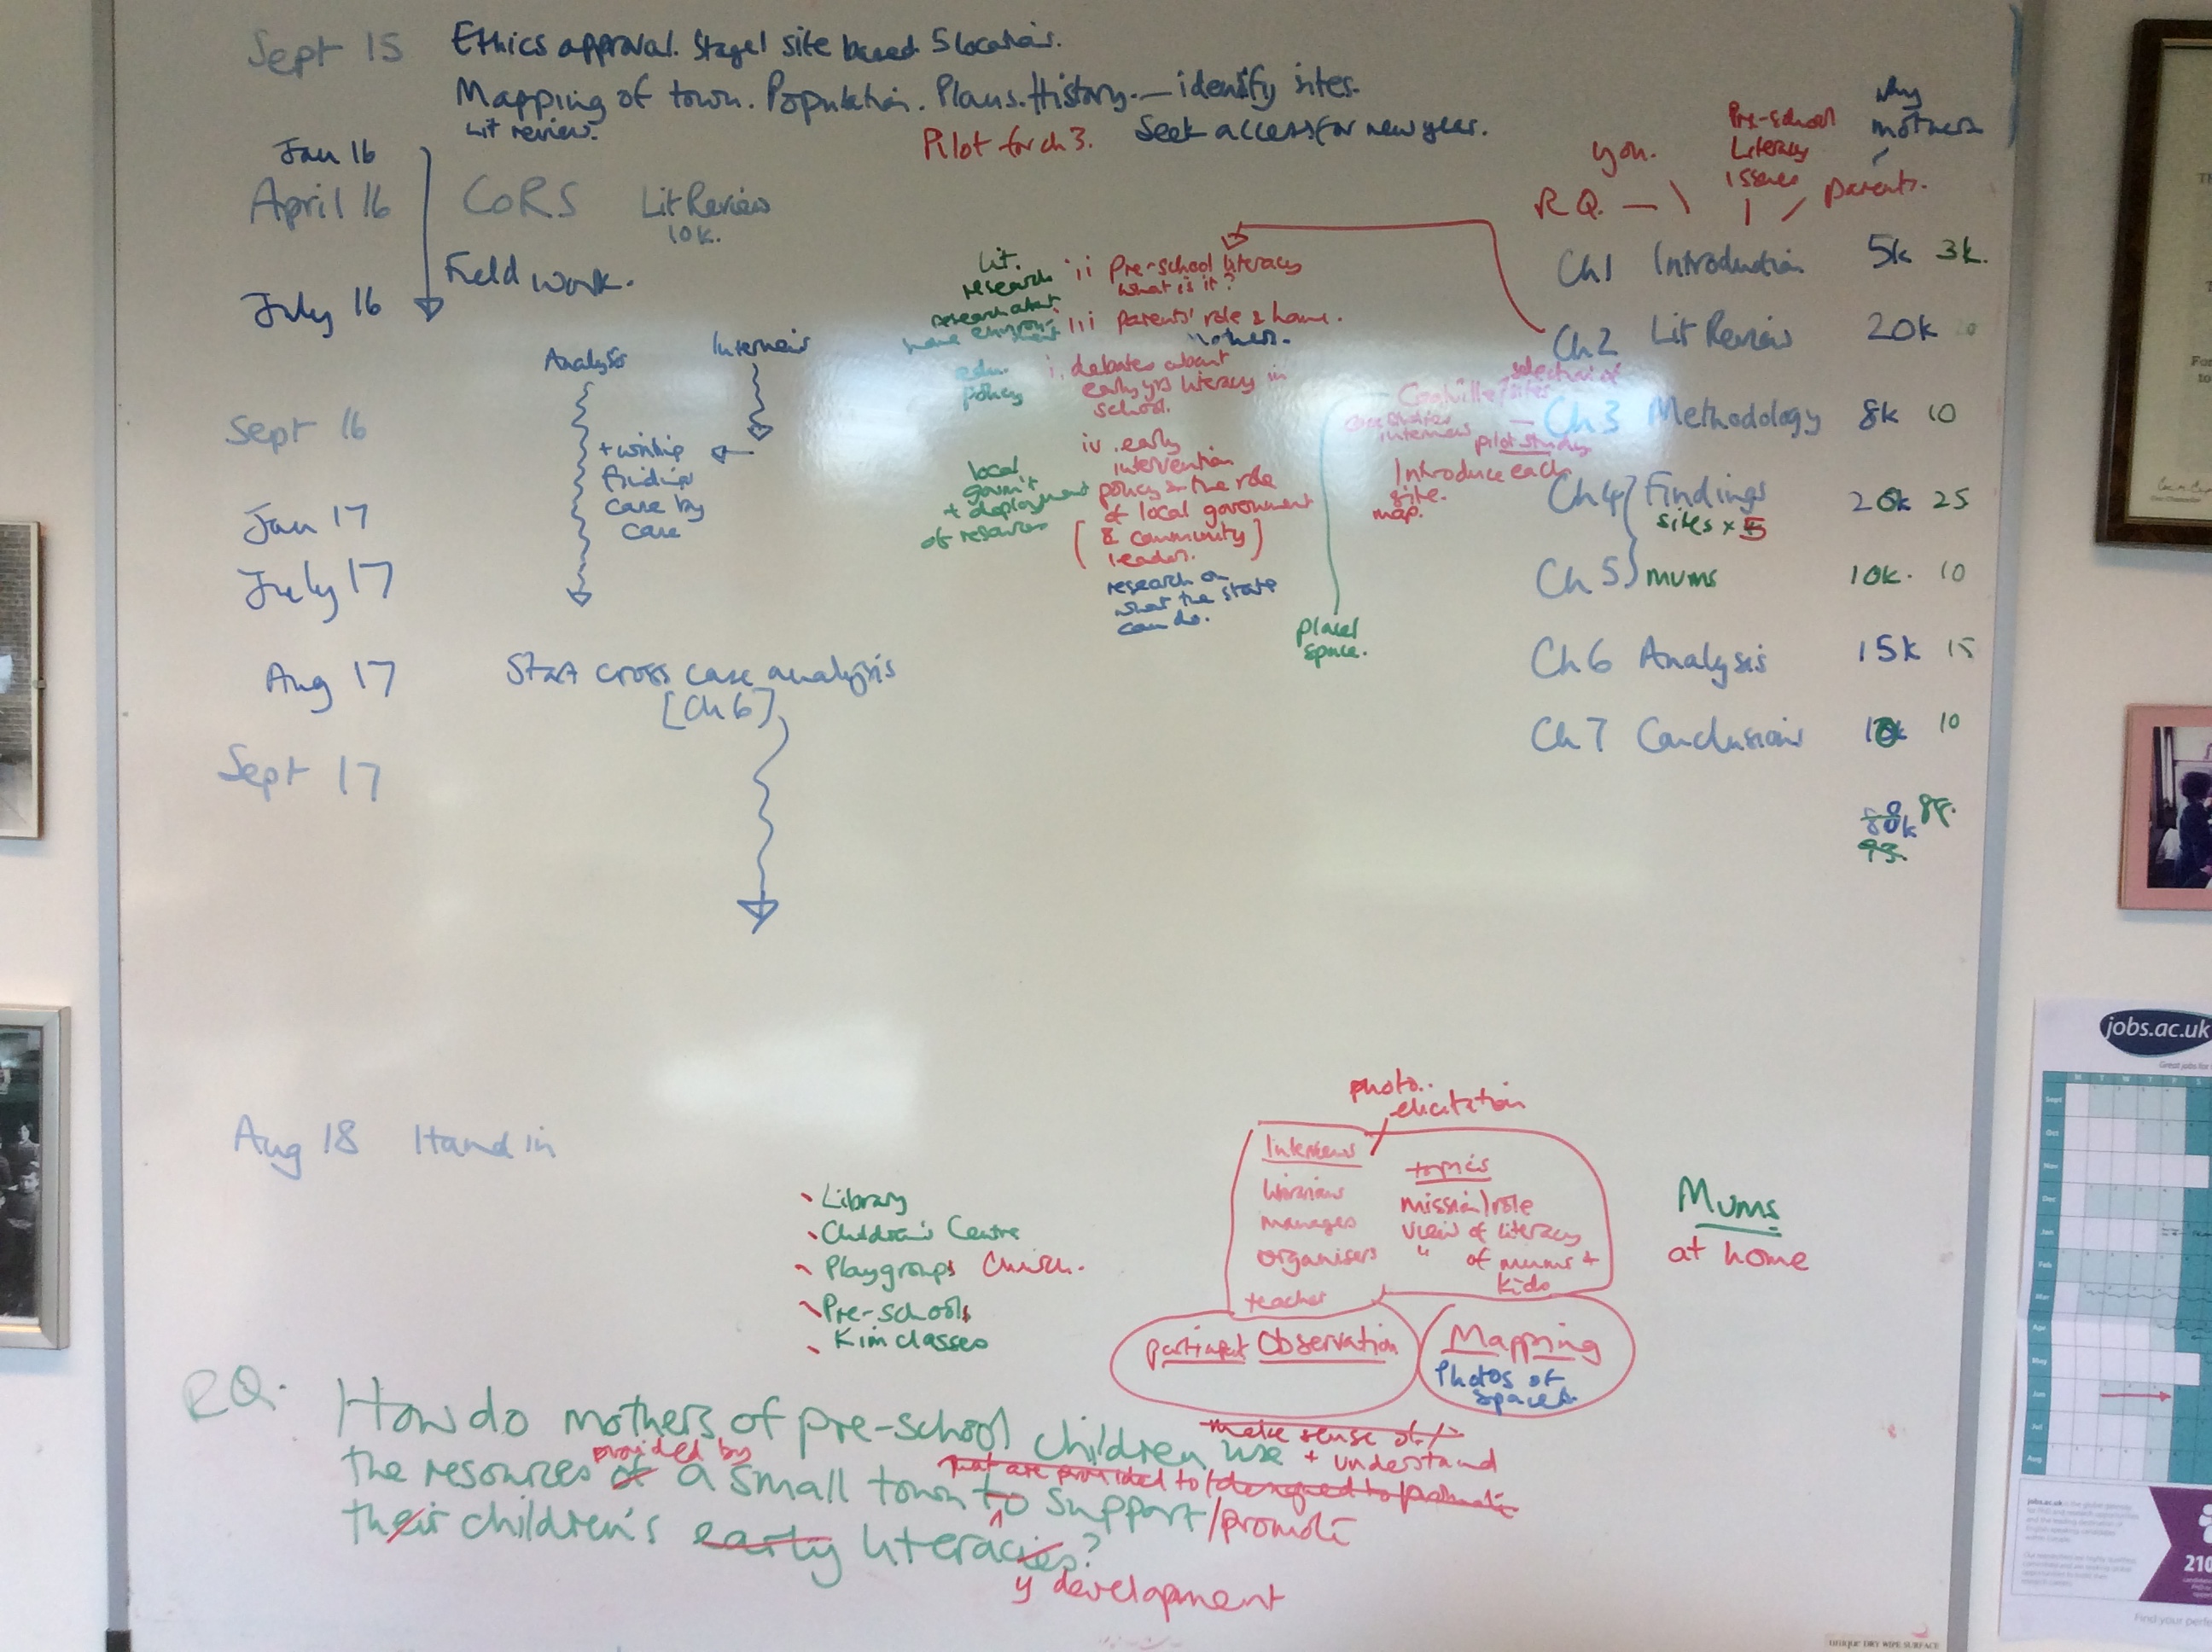 Sept 15 Ethics approval. Stage 1 site based 5 locations.
Mapping of town. Population. Plans. History. — identify sites.
Lit review.
Pilot for ch 3. Seek access for new year.
Jan 16
April 16 CoRS Lit Review
10k.
Field work.
July 16
Analysis Interviews
Sept 16
+ writing
findings
case by
case
Jan 17
July 17
Aug 17 Start cross case analysis
[Ch 6]
Sept 17
Aug 18 Hand in
Lit.
research
research about
home environment
edu.
policy
local
gov't
+ deployment
of resources
ii Pre-school literacy
what is it?
iii parents' role & home.
mothers.
i. debates about
early yrs literacy in
school.
iv. early
intervention
policy & the role
of local government
[& community]
leaders.
research on
what the state
can do.
place/
space.
you.
Pre-school
Literacy
issues
Why
mothers
parents.
RQ. —
Ch1 Introduction 5k 3k.
Ch2 Lit Review 20k 20
selection of
Coalville/sites
case studies
interviews
pilot study
Ch3 Methodology 8k 10
Introduce each
site.
map.
Ch4 Findings 20k 25
sites x 5
Ch5 mums 10k. 10
Ch6 Analysis 15k 15
Ch7 Conclusions 10k 10
88k
93.
photo..
elicitation
Interviews
librarians
manages
organisers
teacher
topics
mission/role
view of literacy
" of mums +
kids
Participant Observation
Mapping
Photos of
spaces.
Mums
at home
Library
Children's Centre
Playgroups Church.
Pre-schools
Kim classes
RQ. How do mothers of pre-school children use + understand
make sense of/
the resources of provided by a small town to support/promote
that are provided to/designed to promote
their children's early literacies?
y development
jobs.ac.uk
Great jobs for
Sept
Oct
Nov
Dec
Jan
Feb
Mar
Apr
May
Jun
Jul
Aug
jobs.ac.uk
210
Find your perfe
UNIQUE DRY WIPE SURFACE